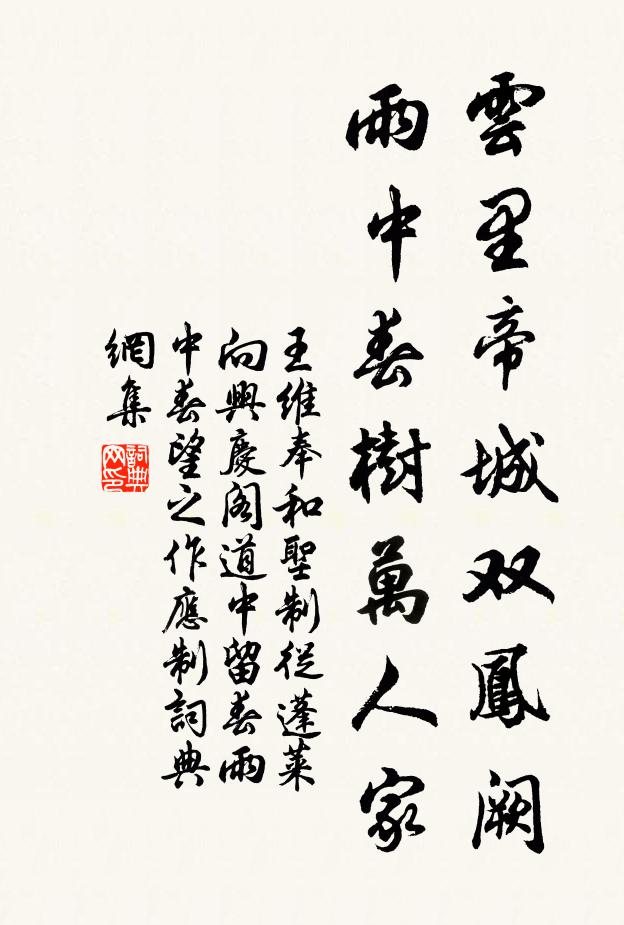 雲里帝城双鳳闕
雨中春樹萬人家
王維奉和聖制從蓬萊
向興慶閣道中留春雨
中春望之作應制詞典
網集
詞典网印